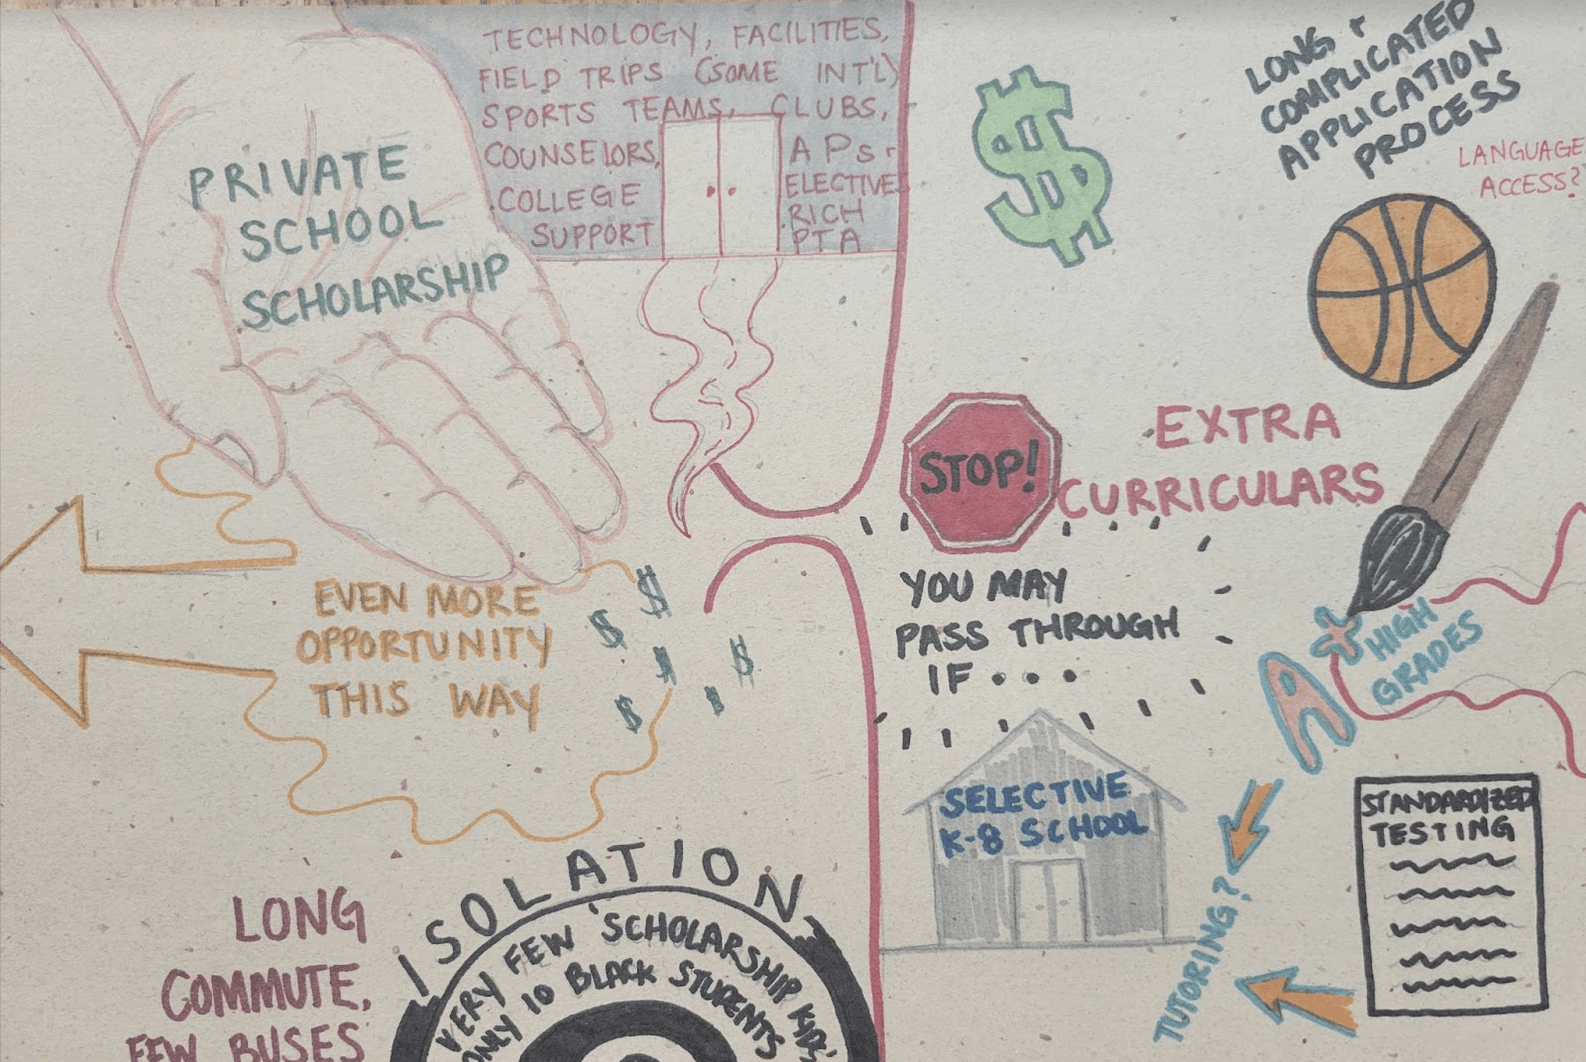 TECHNOLOGY, FACILITIES,
FIELD TRIPS (SOME INT'L)
SPORTS TEAMS, CLUBS,
COUNSELORS,
COLLEGE
SUPPORT
APs +
ELECTIVES
RICH
PTA
PRIVATE
SCHOOL
SCHOLARSHIP
$
LONG +
COMPLICATED
APPLICATION
PROCESS
LANGUAGE
ACCESS?
STOP!
EXTRA
CURRICULARS
YOU MAY
PASS THROUGH
IF...
EVEN MORE
OPPORTUNITY
THIS WAY
$
$
$
$
$
$
A+
HIGH
GRADES
SELECTIVE
K-8 SCHOOL
STANDARDIZED
TESTING
TUTORING?
ISOLATION
VERY FEW 'SCHOLARSHIP KIDS'
ONLY 10 BLACK STUDENTS
LONG
COMMUTE,
FEW BUSES